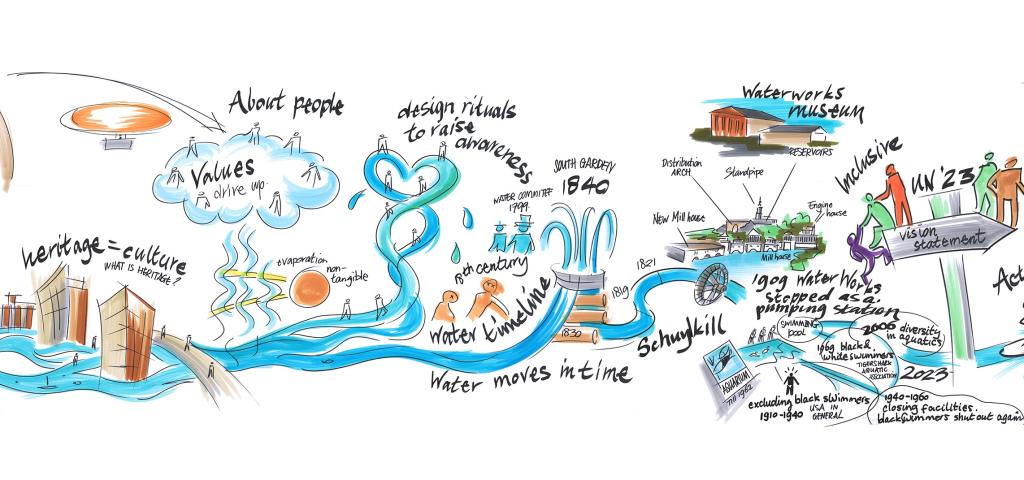 heritage = culture
WHAT IS HERITAGE?
About people
Values
drive up
evaporation
non-
tangible
design rituals
to raise
awareness
WATER COMMITTEE
1799
18th century
Water timeline
Water moves in time
SOUTH GARDEN
1840
1830
1819
1821
Schuylkill
Waterworks
museum
RESERVOIRS
Distribution
ARCH
Standpipe
NEW Mill house
Engine
house
Mill house
1909 Water Works
stopped as a
pumping station
Inclusive
UN '23
vision
statement
SWIMMING
POOL
2006 diversity
in aquatics
1969 black &
white swimmers
TIGERSHARK
AQUATIC
ASSOCIATION
2023
AQUARIUM
Till 1962
excluding black swimmers
1910-1940 USA IN
GENERAL
1940-1960
closing facilities.
black swimmers shut out again